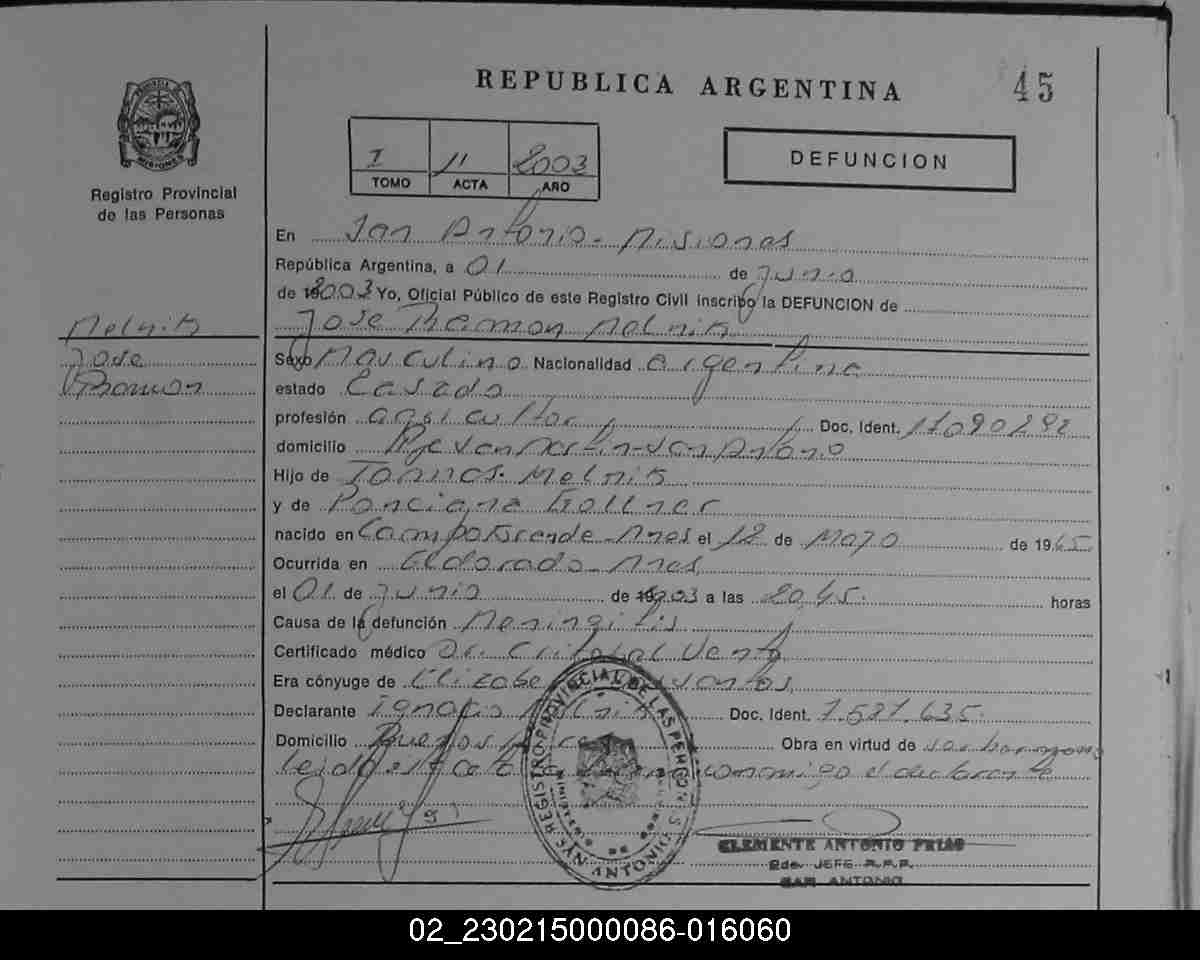 REPUBLICA ARGENTINA
45
PROVINCIA DE MISIONES
Registro Provincial
de las Personas
I 11 2003
TOMO ACTA AÑO
DEFUNCION
En San Antonio - Misiones
República Argentina, a 01 de Junio
de 2003 Yo, Oficial Público de este Registro Civil inscribo la DEFUNCION de
Melnik
Jose Ramon Melnik
Jose
Sexo Masculino Nacionalidad argentina
Ramon
estado Casado
profesión agricultor Doc. Ident. 17090292
domicilio San Antonio
Hijo de Melnik
y de Ponciana
nacido en Campo Grande - Mnes el 12 de Mayo de 1965
Ocurrida en Eldorado - Mnes
el 01 de Junio de 2003 a las 20,45 horas
Causa de la defunción Meningitis
Certificado médico Dr.
Era cónyuge de
Declarante Ignacio Melnik Doc. Ident. 7.521.635
Domicilio Buenos Obra en virtud de
el declarante
REGISTRO PROVINCIAL DE LAS PERSONAS
SAN ANTONIO
CLEMENTE ANTONIO FRIAS
2do. JEFE R.P.P.
SAN ANTONIO
02_230215000086-016060